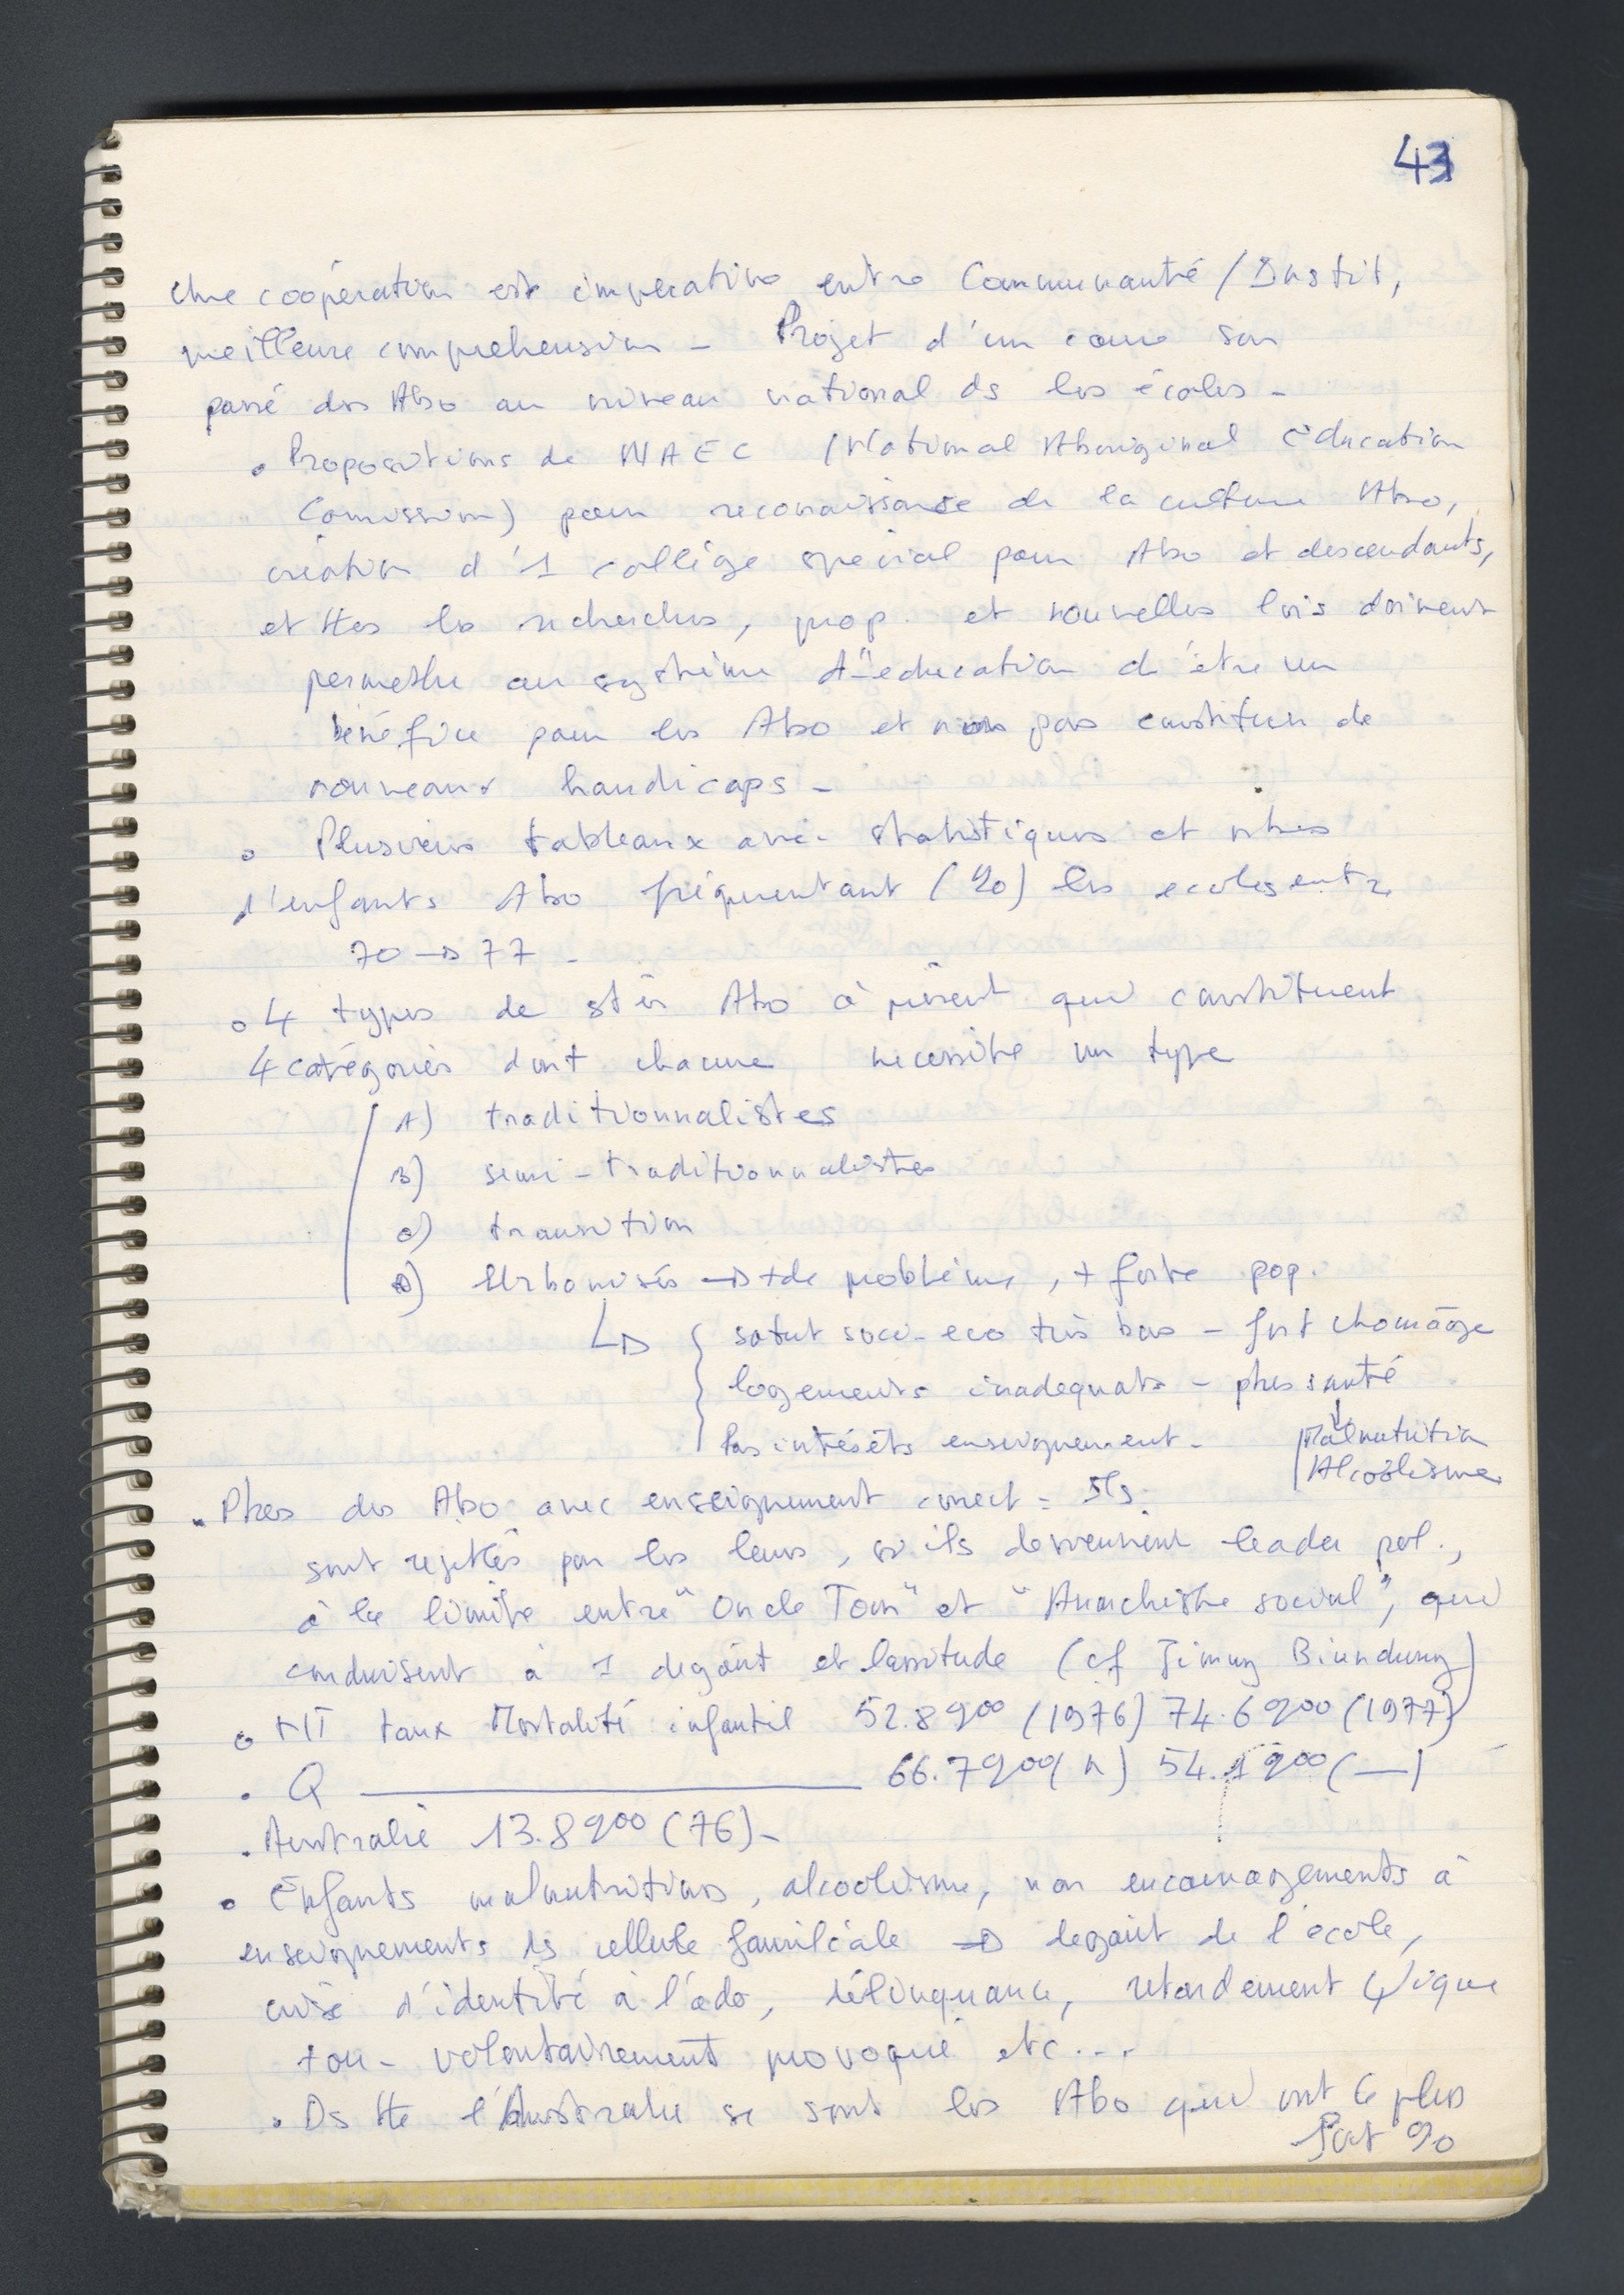 43
Une coopération est impérative entre Communauté / Instit,
meilleure comprehension - Projet d'un cours son
passé des Abo au niveau national ds les écoles -
• Propositions de NAEC (National Aboriginal Education
Comission) pour reconnaissance de la culture Abo,
création d'1 collège special pour Abo et descendants,
et ttes les recherches, prop. et nouvelles lois doivent
permettre au système d'education d'être un
bénéfice pour les Abo et non pas constituer de
nouveaux handicaps -
• Plusieurs tableaux avec statistiques et nbres
d'enfants Abo fréquentant (%) les ecoles entre
70 → 77 -
• 4 types de stés Abo à présent qui constituent
4 catégories dont chacune necessite un type
A) traditionnalistes
B) semi-traditionnalistes
C) transition
D) Urbanisés → + de problème, + forte pop.
↳ { satut socio-eco très bas - fort chomâge
logements inadequats - pbes santé
Pas intérêts enseignement - ↓ Malnutrition
Alcoolisme
• Pbes des Abo avec enseignement correct = Ils
sont rejettés par les leurs, si ils deviennent leader pol.,
à la limite entre "Oncle Tom" et "Anarchiste social", qui
conduisent à 1 degoût et lassitude (cf Jimmy Biundurry)
• NT taux Mortalité infantil 52.8 %00 (1976) 74.6 %00 (1977)
• Q ——— 66.7 %00 (") 54.1 %00 (—)
• Australie 13.8 %00 (76) -
• Enfants malnutritions, alcoolisme, non encouragements à
enseignements ds cellule familiale → degoût de l'école,
crise d'identité à l'ado, délinquance, retardement ψique
+ ou - volontairement provoqué etc...
• Ds tte l'Australie se sont les Abo qui ont le plus
fort %